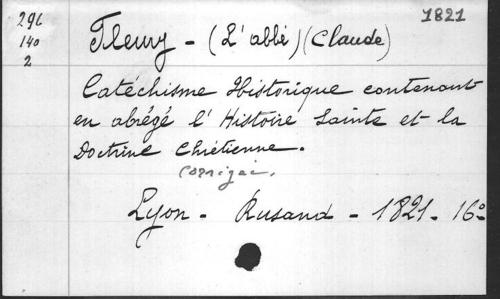 1821
296
140
2
Fleury - (L'abbé) (Claude)
Catéchisme Historique contenant
en abrégé l'Histoire Sainte et la
Doctrine Chrétienne.
Lyon - Rusand - 1821 - 16°